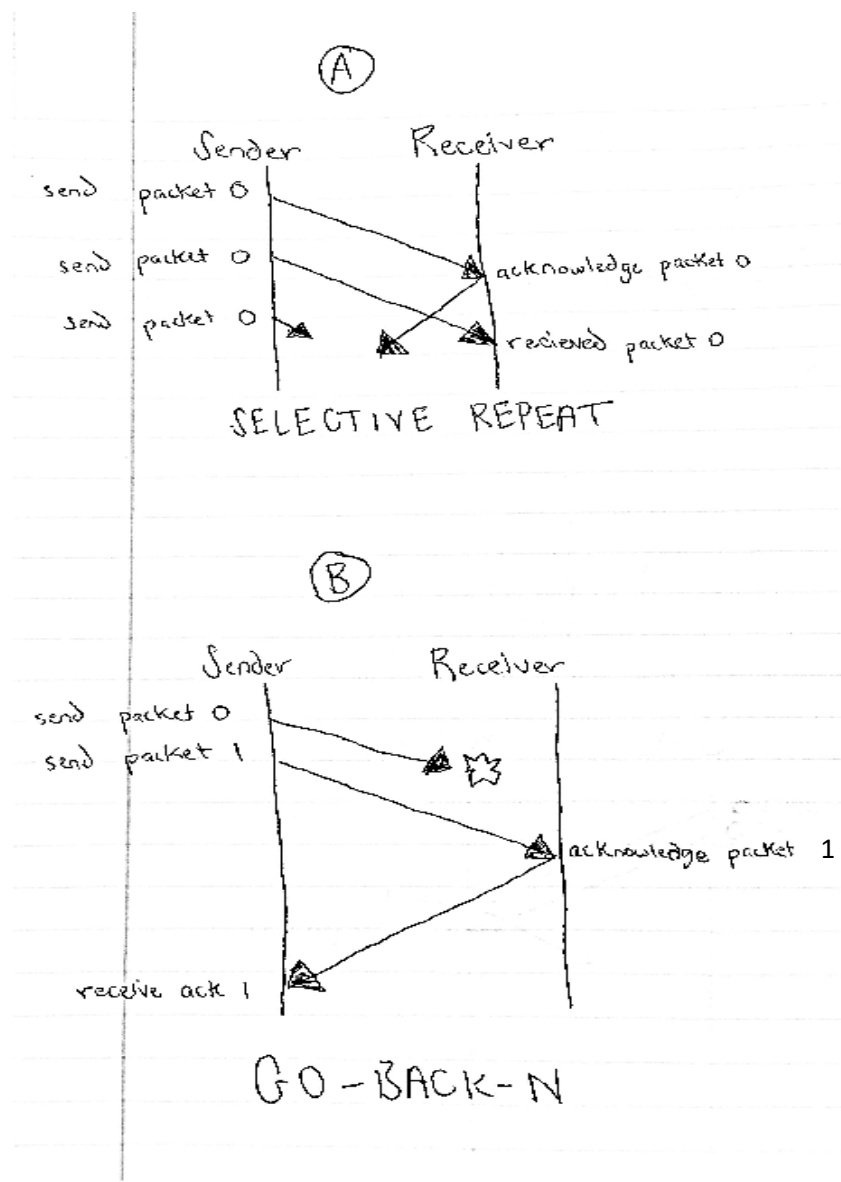 A
Sender Receiver
send packet 0
send packet 0 acknowledge packet 0
send packet 0 recieved packet 0
SELECTIVE REPEAT
B
Sender Receiver
send packet 0
send packet 1
acknowledge packet 1
receive ack 1
GO-BACK-N